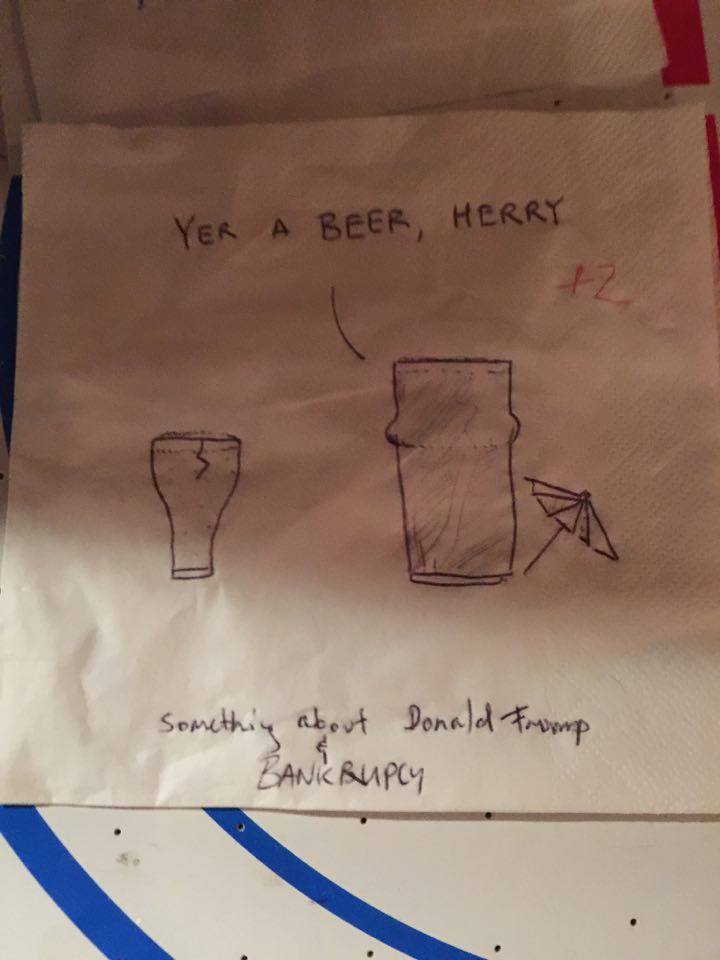 YER A BEER, HERRY
+2
Something about Donald Trump
&
BANKRUPCY